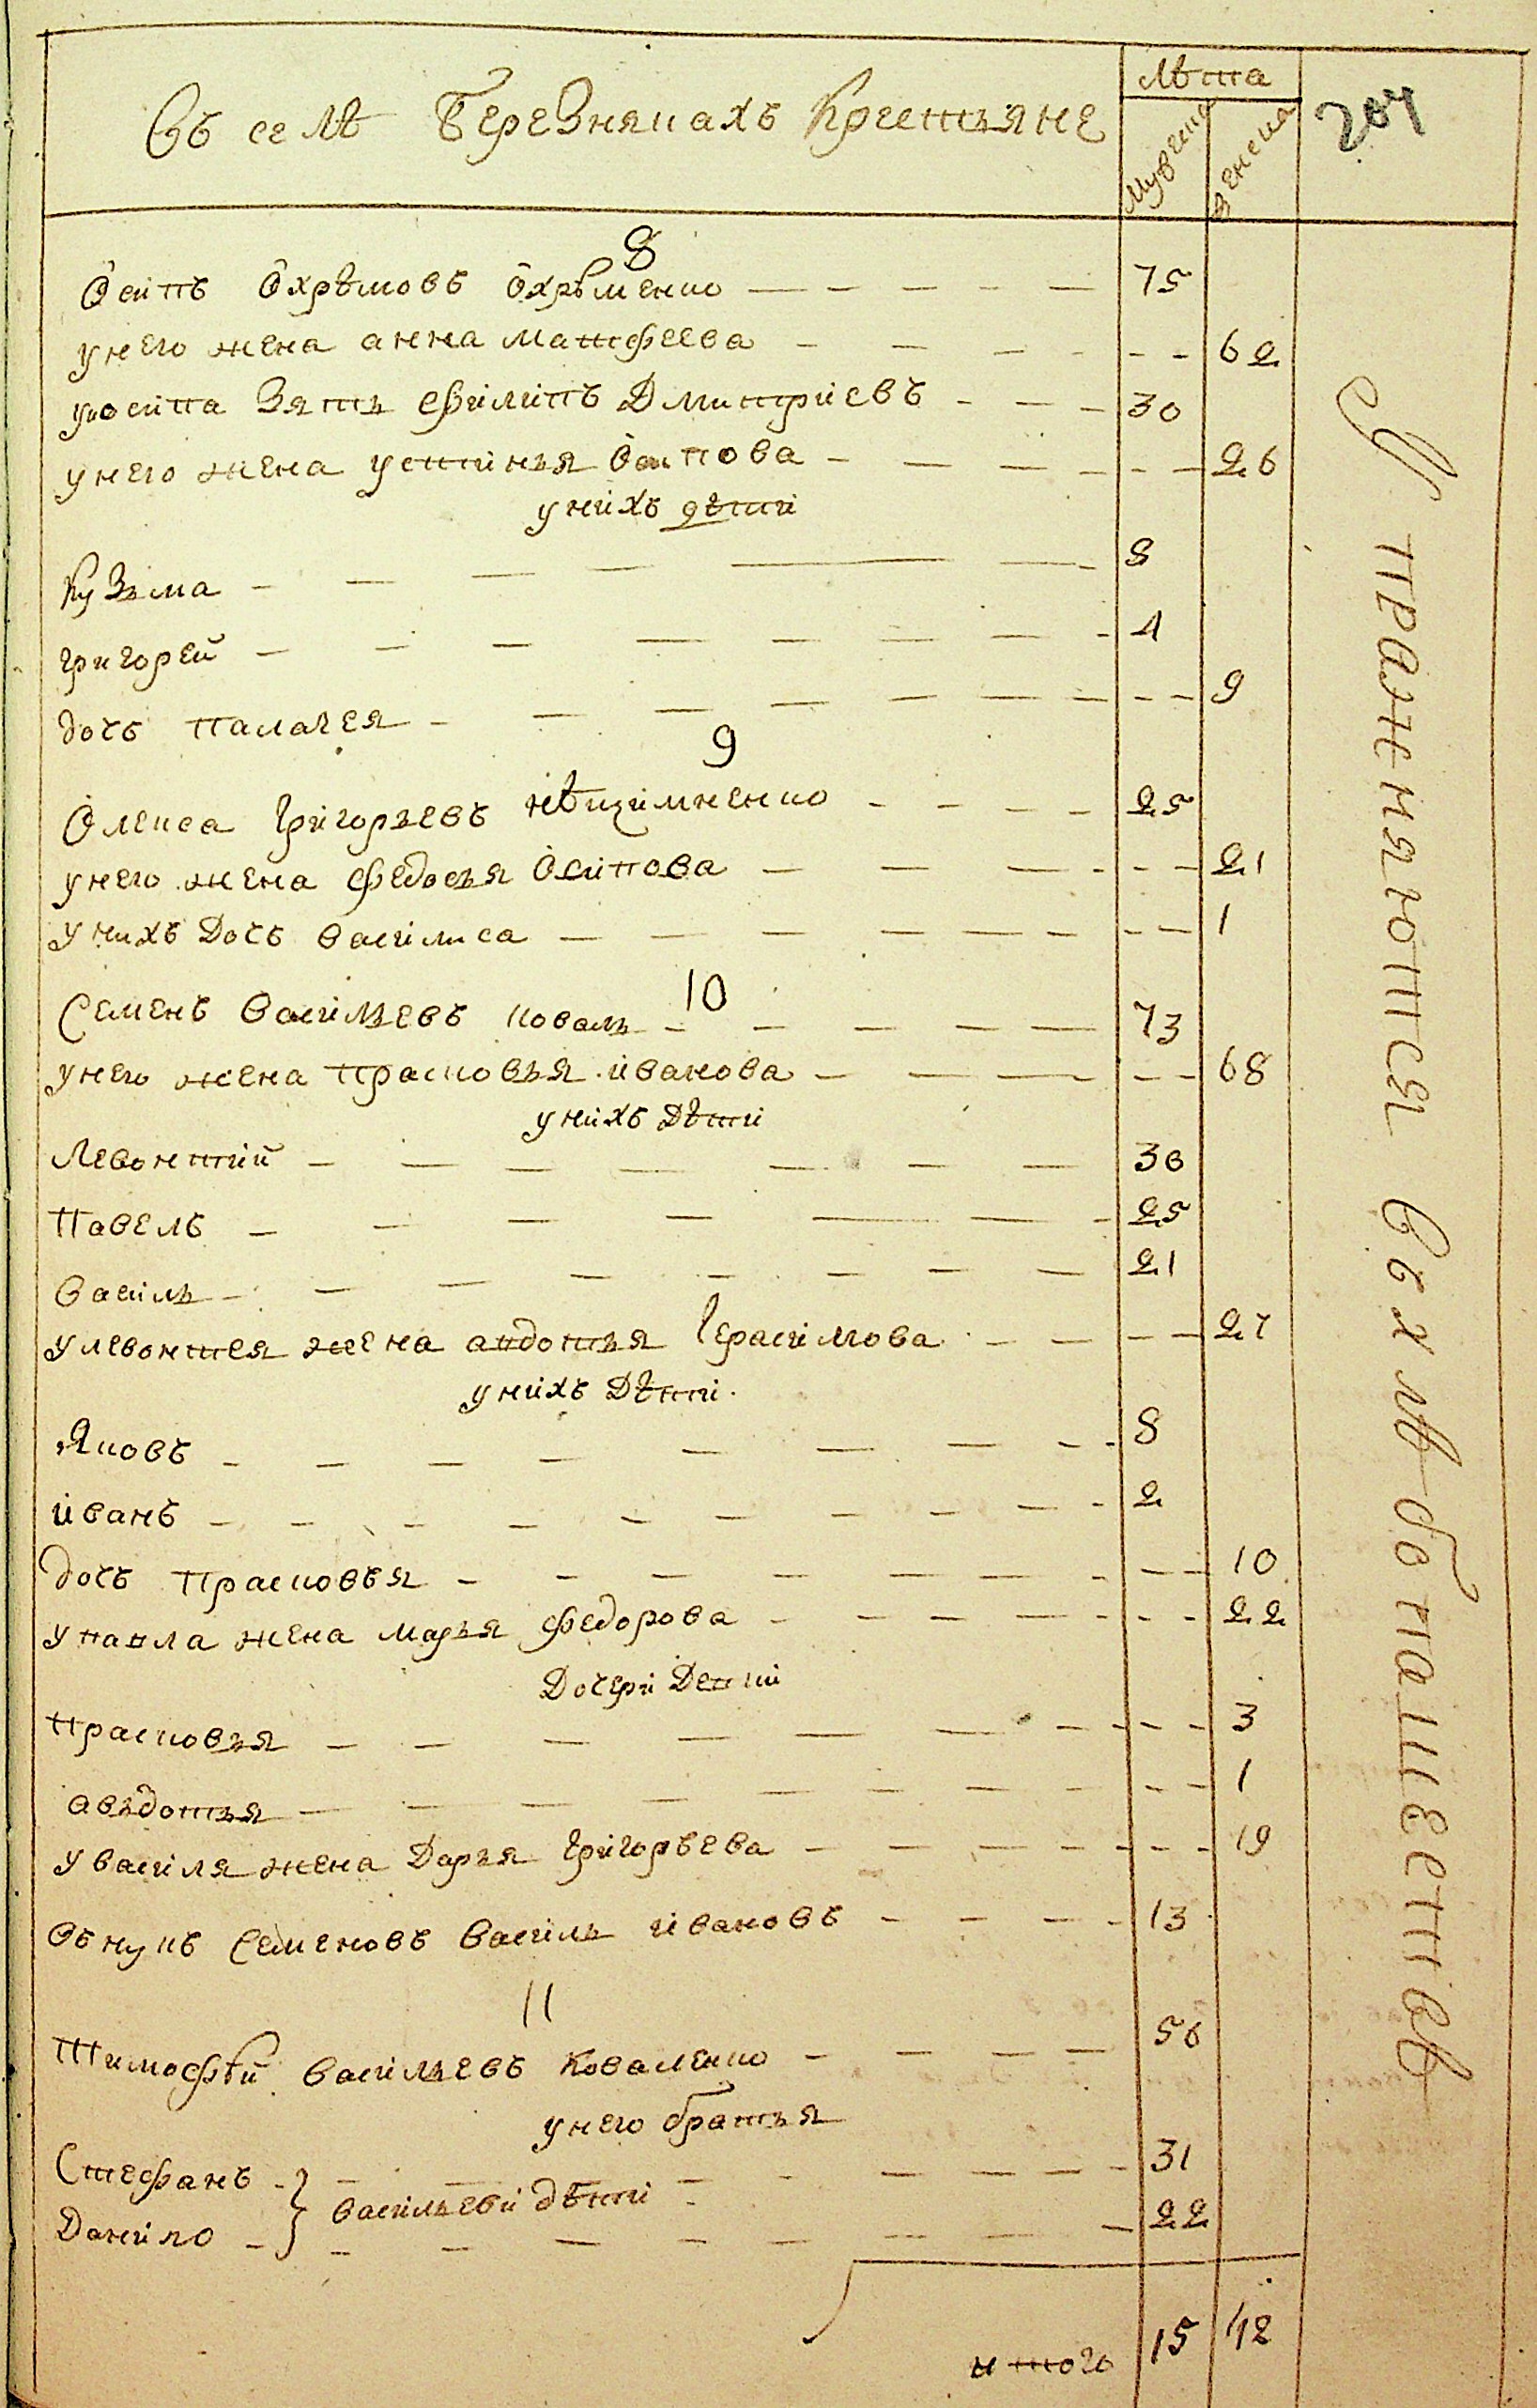 Въ селѣ Березнякахъ Крестьяне
лѣта
мужеска
женска
204
8
Осипъ Охрѣмовъ Охрѣменко 75
у него жена анна матфеева 62
у осипа зять филипъ Дмитриевъ 30
у него жена устинья Осипова 26
у нихъ дѣти
Кузьма 8
григорей 4
дочь палагея 9
9
Олекса григорьевъ 25
у него жена федосья Осипова 21
у нихъ Дочь василиса 1
10
Семенъ васильевъ коваль 73
у него жена прасковья иванова 68
у нихъ Дѣти
Левонтий 30
Павелъ 25
василь 21
у левонтея жена авдотья герасимова 27
у нихъ Дѣти
Яковъ 8
иванъ 2
дочь прасковья 10
у павла жена марья федорова 22
Дочери Дети
прасковья 3
авъдотья 1
у василя жена Дарья григорьева 19
внукъ Семеновъ василь ивановъ 13
11
Тимофѣй васильевъ коваленко 56
у него братья
Стефанъ 31
васильеви дѣти
Данило 22
итого 15 12
Упражняются в хлѣбопашествѣ